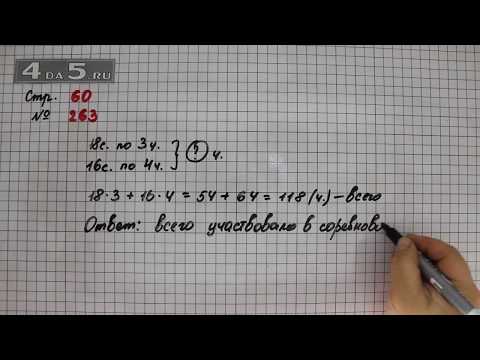 4DA5.RU
Стр. 60
№ 263
18с. по 3ч.
16с. по 4ч. } ? ч.
18·3 + 16·4 = 54 + 64 = 118 (ч.) – всего
Ответ: всего участвовало в соревнова